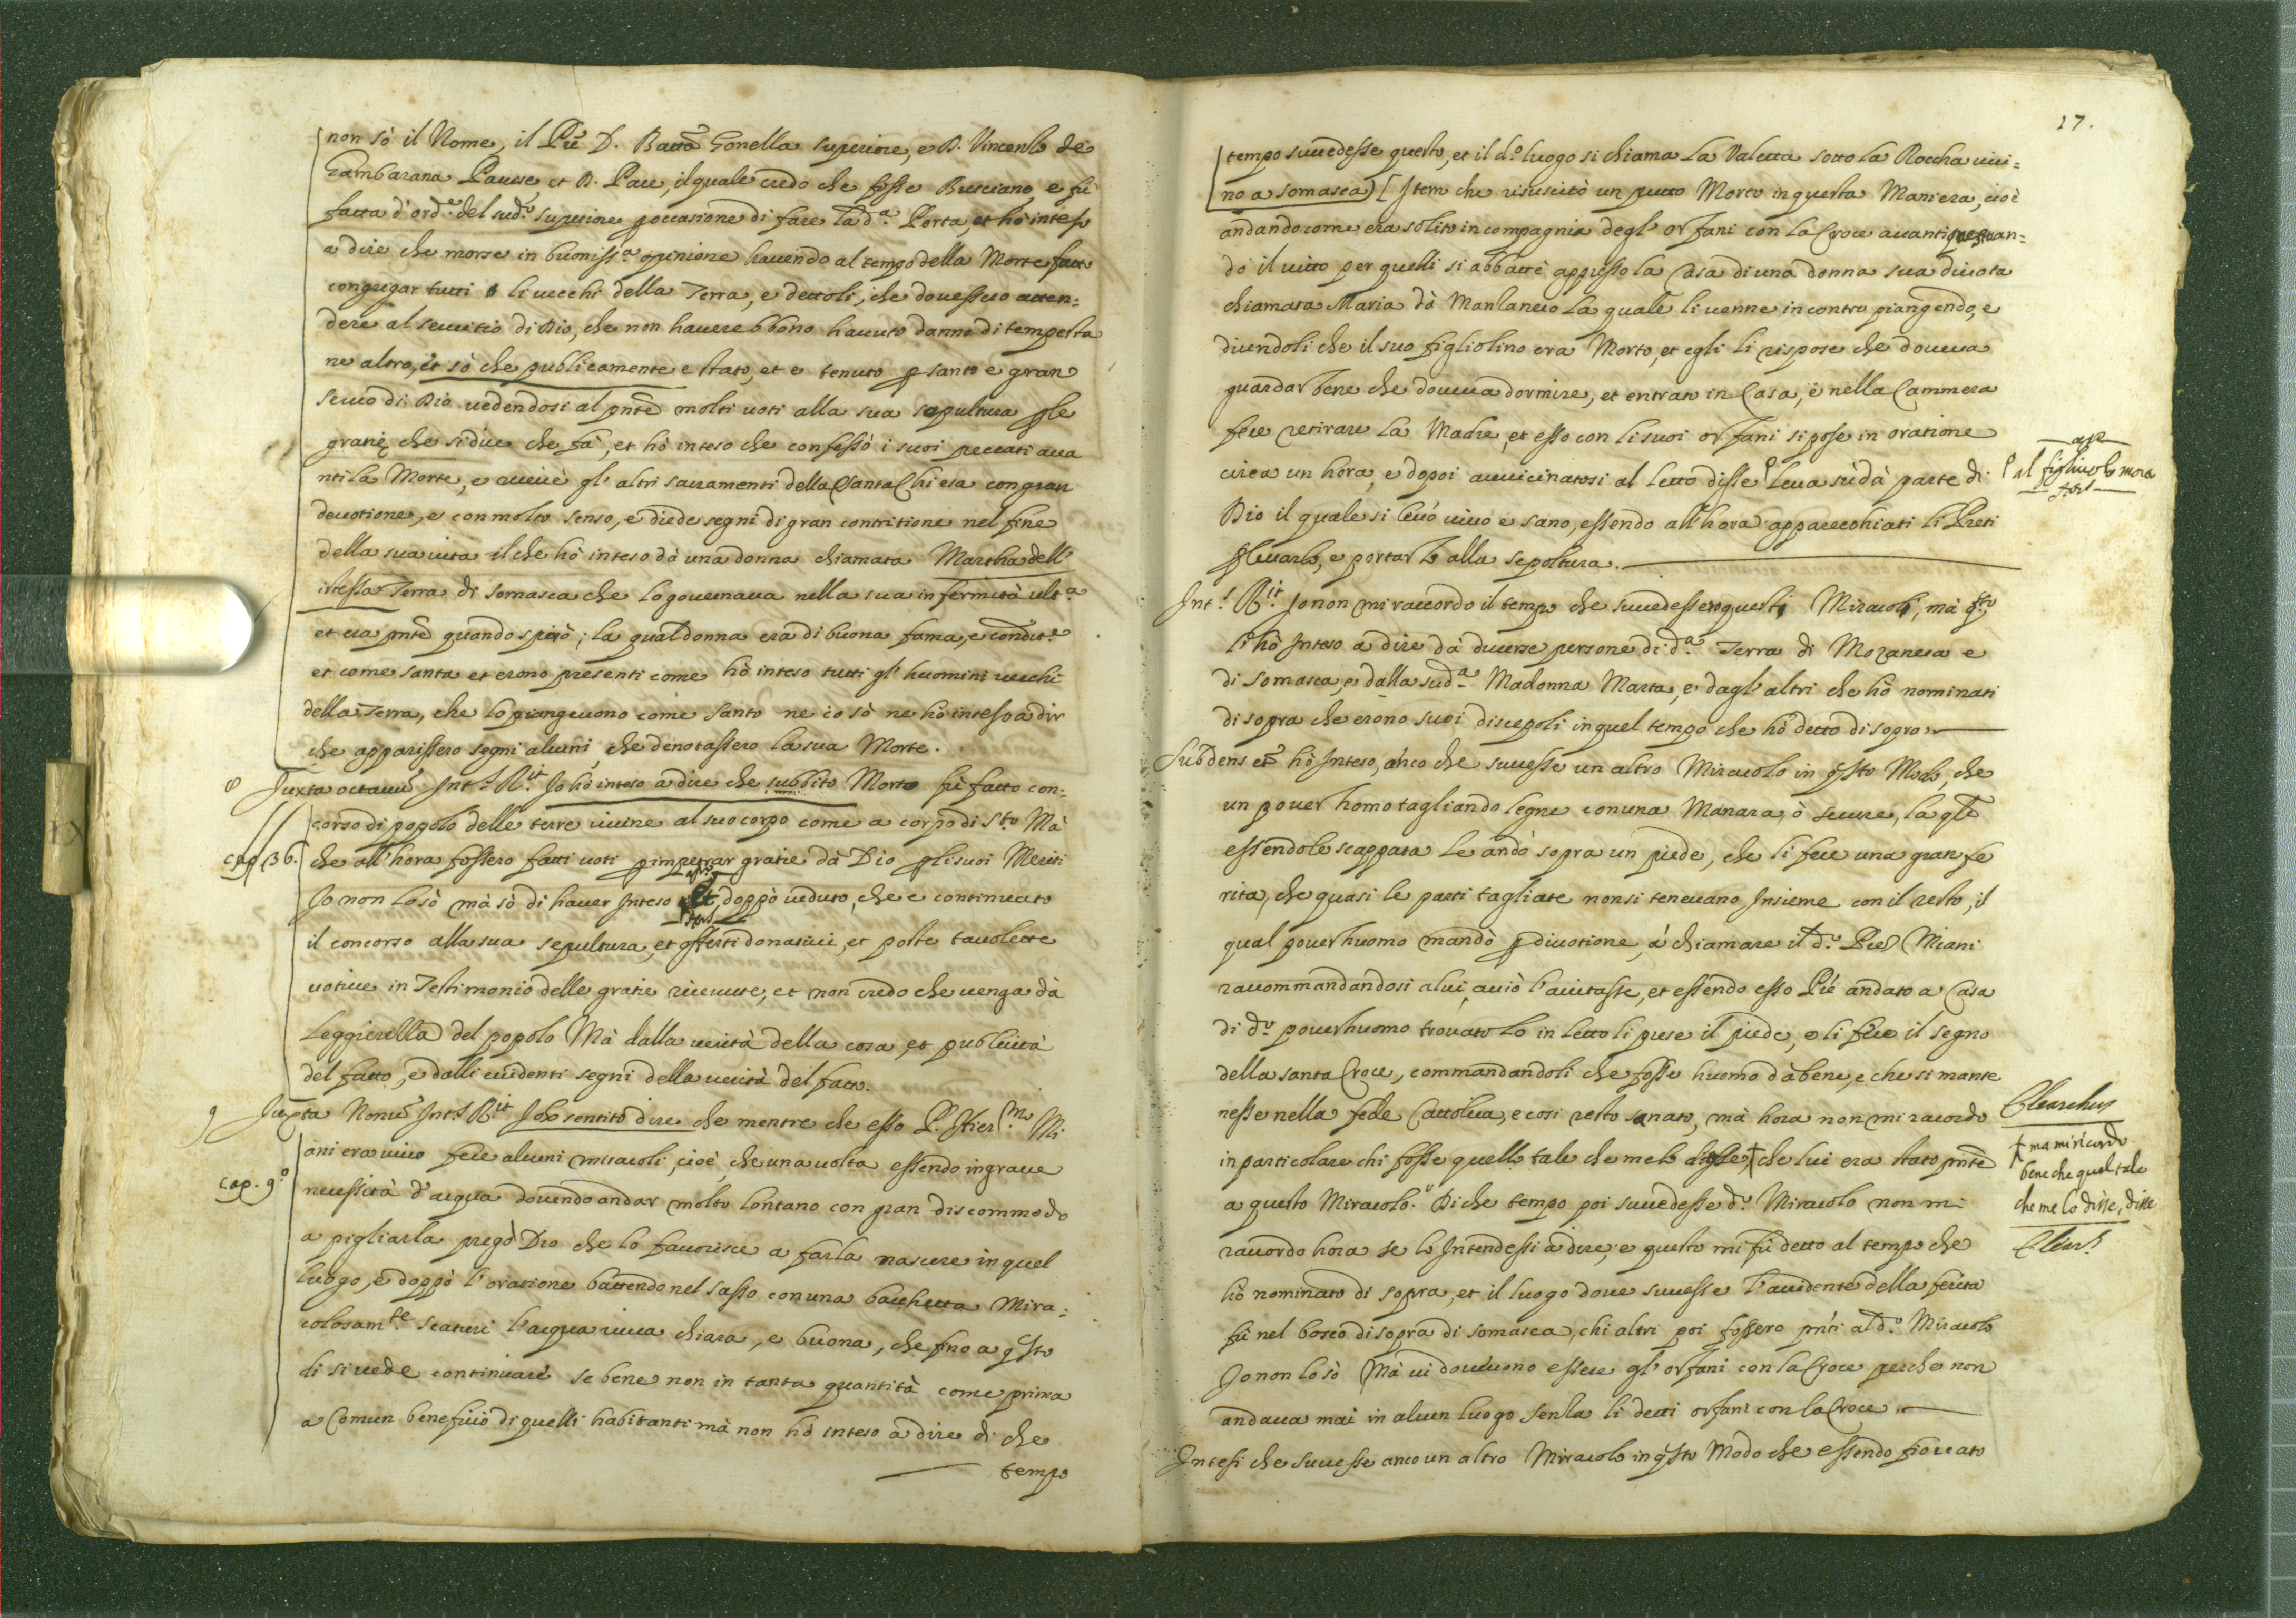 non sò il Nome, il Pre D. Batta Gonella superiore, e D. Vincenzo de
Gambarana Pavese, et D. Pace, il quale credo che fosse Bresciano, e fù
fatta d'orde del sudo superiore p occasione di fare la da Porta, et hò inteso
a dire che morse in buonissa opinione havendo al tempo della Morte fatto
congregar tutti li vecchi della Terra, e dettoli, che dovessero atten=
dere al servitio di Dio, che non haverebbono havuto danno di tempesta
ne altro, et sò che publicamente e stato, et e tenuto p santo e gran
servo di Dio vedendosi al pnte molti voti alla sua sepultura p le
gratie che si dice che fà, et hò inteso che confessò i suoi peccati ava
nti la Morte, e riceuè gl' altri sacramenti della Santa Chiesa con gran
devotione, e con molto senso, e diede segni di gran contritione nel fine
della sua vita il che hò inteso dà una donna chiamata Martha dell'
istessa Terra di Somasca che lo governava nella sua infermità ulta
et era pnte quando spirò; la qual donna era di buona fama, e condite
et come santa et erono presenti come hò inteso tutti gl' huomini vecchi
della Terra, che lo piangevono come santo ne io sò ne hò inteso a dir
che apparissero segni alcuni che denotassero la sua Morte.
8 Juxta octavu Ints Rit Io hò inteso a dire che subbito Morto fù fatto con=
corso di popolo delle terre vicine al suo corpo come a corpo di Sto Mà
cap 36. che all'hora fossero fatti voti p impetrar gratie dà Dio p li suoi Meriti
Io non lo sò mà sò di haver Inteso et, doppò veduto, che e continuato
il concorso alla sua sepultura, et offerti donativi, et poste tavolette
votive in Testimonio delle gratie ricevute, et non credo che venga dà
leggierella del popolo Mà dalla verità della cosa, et publicità
del fatto, e dalli evidenti segni della verità del fatto.
9 Juxta Nonu Ints Rit Io hò sentito dire che mentre che esso P. Hiermo Mi
ani era vivo fece alcuni miracoli, cioè, che una volta essendo in grave
cap. 9o necessità d'acqua dovendo andar molto lontano con gran discommodo
a pigliarla pregò Dio che lo favorisce a farla nascere in quel
luogo, e doppò l'oratione battendo nel sasso con una bacchetta Mira=
colosamte scaturì l'acqua viva chiara, e buona, che fino a qsto
dì si vede continuare se bene non in tanta quantità come prima
a Comun beneficio di quelli habitanti mà non hò inteso a dire di che
tempo
17.
tempo succedesse questo, et il do luogo si chiama la Valetta sotto la Roccha vici=
no a Somasca) [Item che risuscitò un putto Morto in questa Maniera, cioè
andando come era solito in compagnia degl' orfani con la Croce avanti questuan=
do il vitto per quelli si abbattè appresso la Casa di una donna sua divota
chiamata Maria dà Manzaneso la quale li venne incontro piangendo, e
dicendoli che il suo figliolino era Morto, et egli li rispose che doveva
guardar bene che doveva dormire, et entrato in Casa, e nella Cammera
fece retirare la Madre, et esso con li suoi orfani si pose in oratione
circa un hora, e dopoi avvicinatosi al letto disse leva sù dà parte di
al figliuolo
Dio il quale si levò vivo e sano, essendo all'hora apparecchiati li Preti
p levarlo, e portarlo alla sepoltura.
Ints Rit Io non mi raccordo il tempo che succedessero questi Miracoli, mà qsto
l'hò Inteso a dire dà diverse persone di da Terra di Mozanega e
di Somasca, e dalla suda Madonna Marta, e dagl' altri che hò nominati
di sopra che erono suoi discepoli in quel tempo che hò detto di sopra
Subdens et hò Inteso, anco che successe un altro Miracolo in qsto Modo, che
un pover homo tagliando legne con una Manara, ò secure, la qle
essendole scappata le andò sopra un piede, che li fece una gran fe
rita, che quasi le parti tagliate non si tenevano Insieme con il resto, il
qual pover huomo mandò p divotione, à chiamare il do Pre Miani
raccommandandosi a lui, acciò l'aiutasse, et essendo esso Pre andato a Casa
di do pover huomo trovatolo in letto li prese il piede, e li fece il segno
della santa Croce, commandandoli che fosse huomo dà bene, e che si mante
nesse nella fede Cattolica, e così restò sanato, mà hora non mi racordo
in particolare chi fosse quello tale che me lo disse + che lui era stato pnte
Clearchus
+ ma mi ricordo
bene che quel tale
che me lo disse, disse
Clears
a questo Miracolo. Di che tempo poi succedesse do Miracolo non mi
raccordo hora se lo Intendessi a dire, e questo mi fù detto al tempo che
hò nominato di sopra, et il luogo dove successe l'accidente della ferita
fù nel bosco di sopra di Somasca, chi altri poi fossero pnti al do Miracolo
Io non lo sò Mà vi dovevono essere gl' orfani con la Croce perche non
andava mai in alcun luogo senza li detti orfani con la Croce.
Intesi che successe anco un altro Miracolo in qsto Modo che essendo fioccato